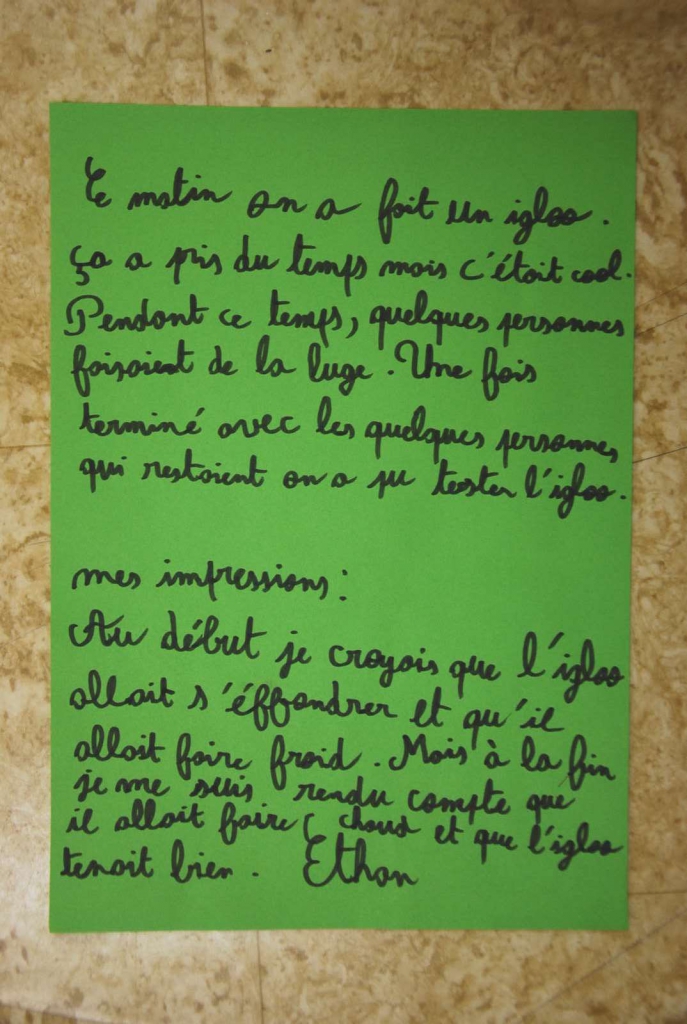 Ce matin on a fait un igloo.
Ça a pris du temps mais c'était cool.
Pendant ce temps, quelques personnes
faisaient de la luge. Une fois
terminé avec les quelques personnes
qui restaient on a pu tester l'igloo.
mes impressions :
Au début je croyais que l'igloo
allait s'éffondrer et qu'il
allait faire froid. Mais à la fin
je me suis rendu compte que
il allait faire chaud et que l'igloo
tenait bien. Ethan